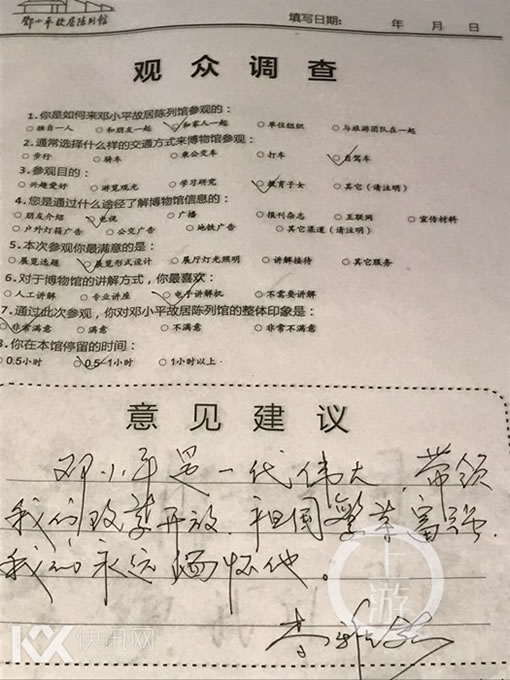 邓小平故居陈列馆
填写日期: 年 月 日
观众调查
1.你是如何来邓小平故居陈列馆参观的：
○独自一人 ○和朋友一起 ○和家人一起 ○单位组织 ○与旅游团队在一起
2.通常选择什么样的交通方式来博物馆参观：
○步行 ○骑车 ○乘公交车 ○打车 ○自驾车
3.参观目的：
○兴趣爱好 ○游览观光 ○学习研究 ○教育子女 ○其它（请注明）
4.您是通过什么途径了解博物馆信息的：
○朋友介绍 ○电视 ○广播 ○报刊杂志 ○互联网 ○宣传材料
○户外灯箱广告 ○公交广告 ○地铁广告 ○其它渠道（请注明）
5.本次参观你最满意的是：
○展览选题 ○展览形式设计 ○展厅灯光照明 ○讲解接待 ○其它服务
6.对于博物馆的讲解方式，你最喜欢：
○人工讲解 ○专业讲座 ○电子讲解机 ○不需要讲解
7.通过此次参观，你对邓小平故居陈列馆的整体印象是：
○非常满意 ○满意 ○不满意 ○非常不满意
8.你在本馆停留的时间：
○0.5小时 ○0.5–1小时 ○1小时以上
意见建议
邓小平是一代伟大,带领
我们改革开放.祖国繁荣富强.
我们永远缅怀他。
上游
KX 快讯网